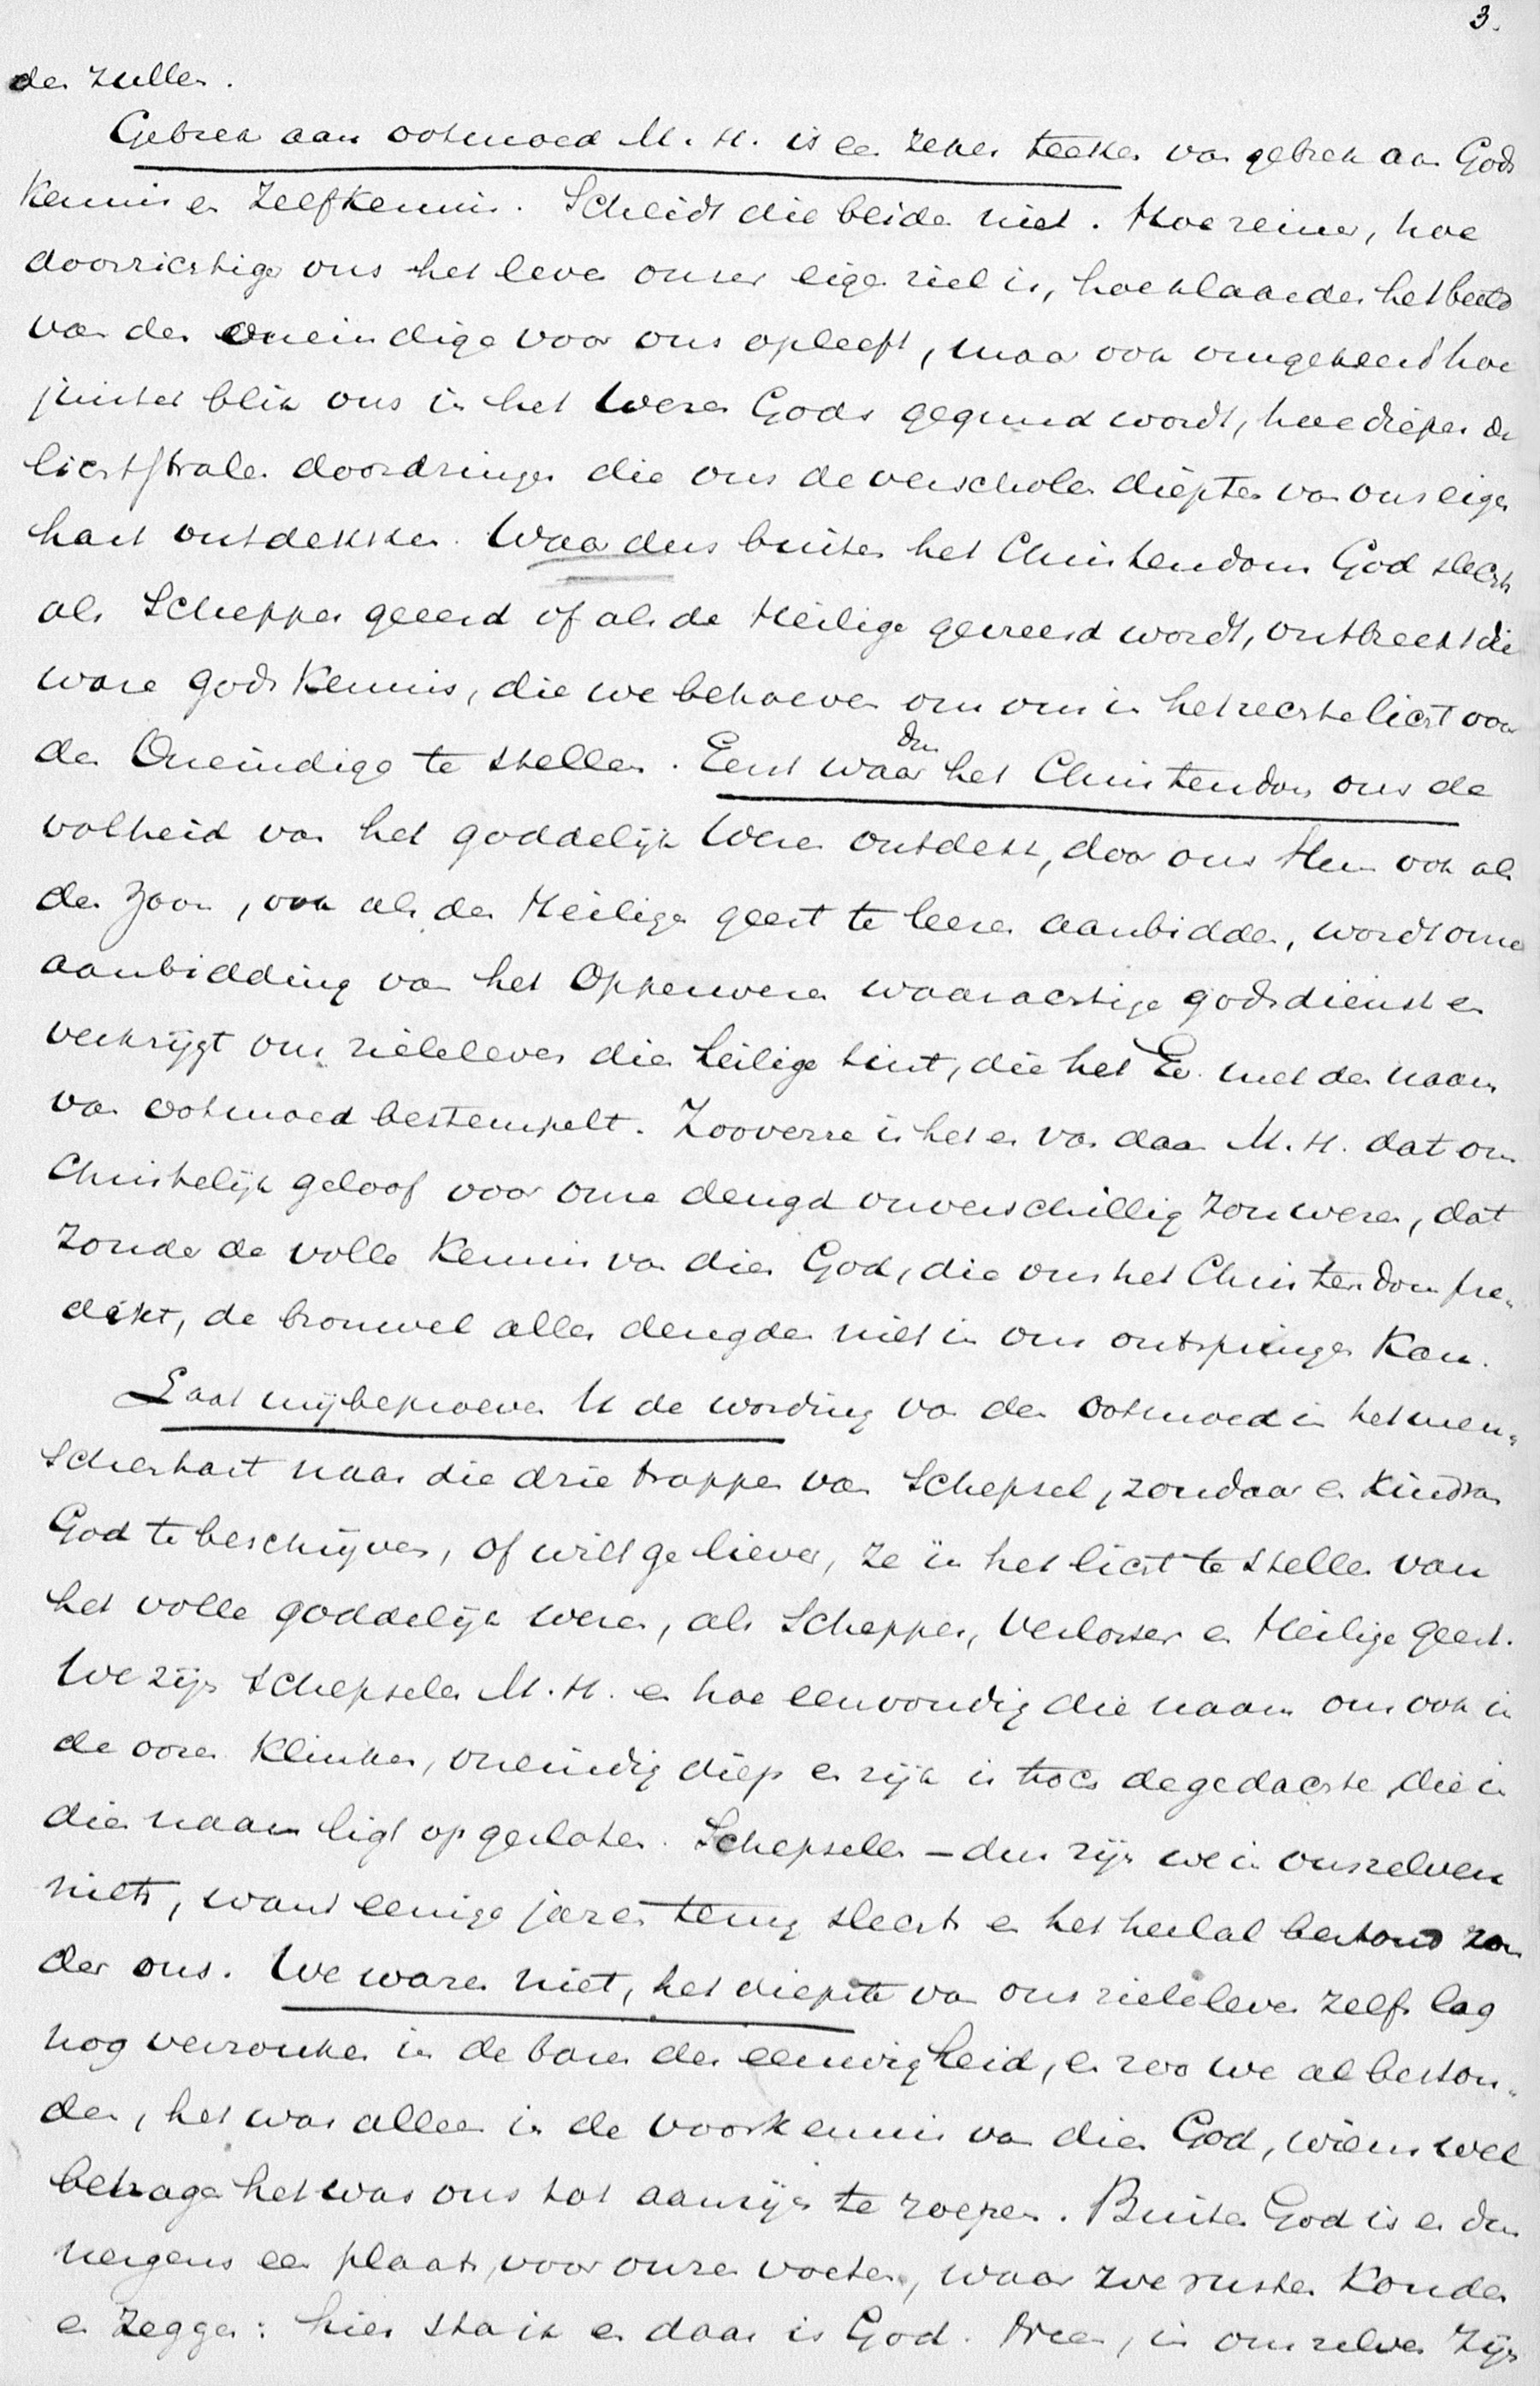 3.
den zullen.
Gebrek aan ootmoed M. H. is een zeker teeken van gebrek aan Gods
kennis en zelfkennis. Scheidt die beiden niet. Hoe reiner, hoe
doorzichtiger ons het leven onzer eigen ziel is, hoe klaarder het beeld
van den Oneindige voor ons opleeft, maar ook omgekeerd hoe
juister blik ons in het Wezen Gods gegund wordt, hoe dieper de
lichtstralen doordringen die ons de verscholen diepten van ons eigen
hart ontdekken. Waar dus buiten het Christendom God slechts
als Schepper geeerd of als de Heilige gevreesd wordt, ontbreekt die
ware gods kennis, die we behoeven om ons in het rechte licht voor
den Oneindige te stellen. Eerst waar dus het Christendom ons de
volheid van het goddelijk Wezen ontdekt, door ons Hem ook als
den Zoon, ook als den Heiligen geest te leeren aanbidden, wordt onze
aanbidding van het Opperwezen waarachtige godsdienst en
verkrijgt ons zieleleven dien heiligen tint, die het Ev. met den naam
van ootmoed bestempelt. Zooverre is het er van daan M. H. dat ons
Christelijk geloof voor onze deugd onverschillig zou wezen, dat
zonder de volle kennis van dien God, die ons het Christendom pre„
dikt, de bronwel aller deugden niet in ons ontspringen kan.
Laat mij beproeven U de wording van den ootmoed in het men„
schenhart naar die drie trappen van Schepsel, zondaar en Kind van
God te beschrijven, of wilt ge liever, ze in het licht te stellen van
het volle goddelijk wezen, als Schepper, Verlosser en Heilige geest.
We zijn schepselen M. H. en hoe eenvoudig die naam ons ook in
de ooren klinken, oneindig diep en rijk is toch de gedachte die in
dien naam ligt opgesloten. Schepselen – dus zijn we in onszelven
niets, want eenige jaren terug slechts en het heelal bestond zon
der ons. We waren niet, het diepste van ons zieleleven zelfs lag
nog verzonken in de baren der eeuwigheid, en zoo we al beston„
den, het was alleen in de voorkennis van dien God, wiens wel
behagen het was ons tot aanzijn te roepen. Buiten God is er dus
nergens een plaats, voor onzen voeten, waar we rusten konden
en zeggen: hier sta ik en daar is God. Neen, in onszelven zijn